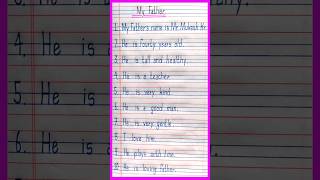 My Father
1. My Father's name is Mr. Mukesh Kr.
2. He is fourty years old.
3. He is tall and healthy.
4. He is a teacher.
5. He is very kind.
6. He is a good man.
7. He is very gentle.
8. I love him.
9. He plays with me.
10. He is loving father.
4. He is
5. He
6. He is